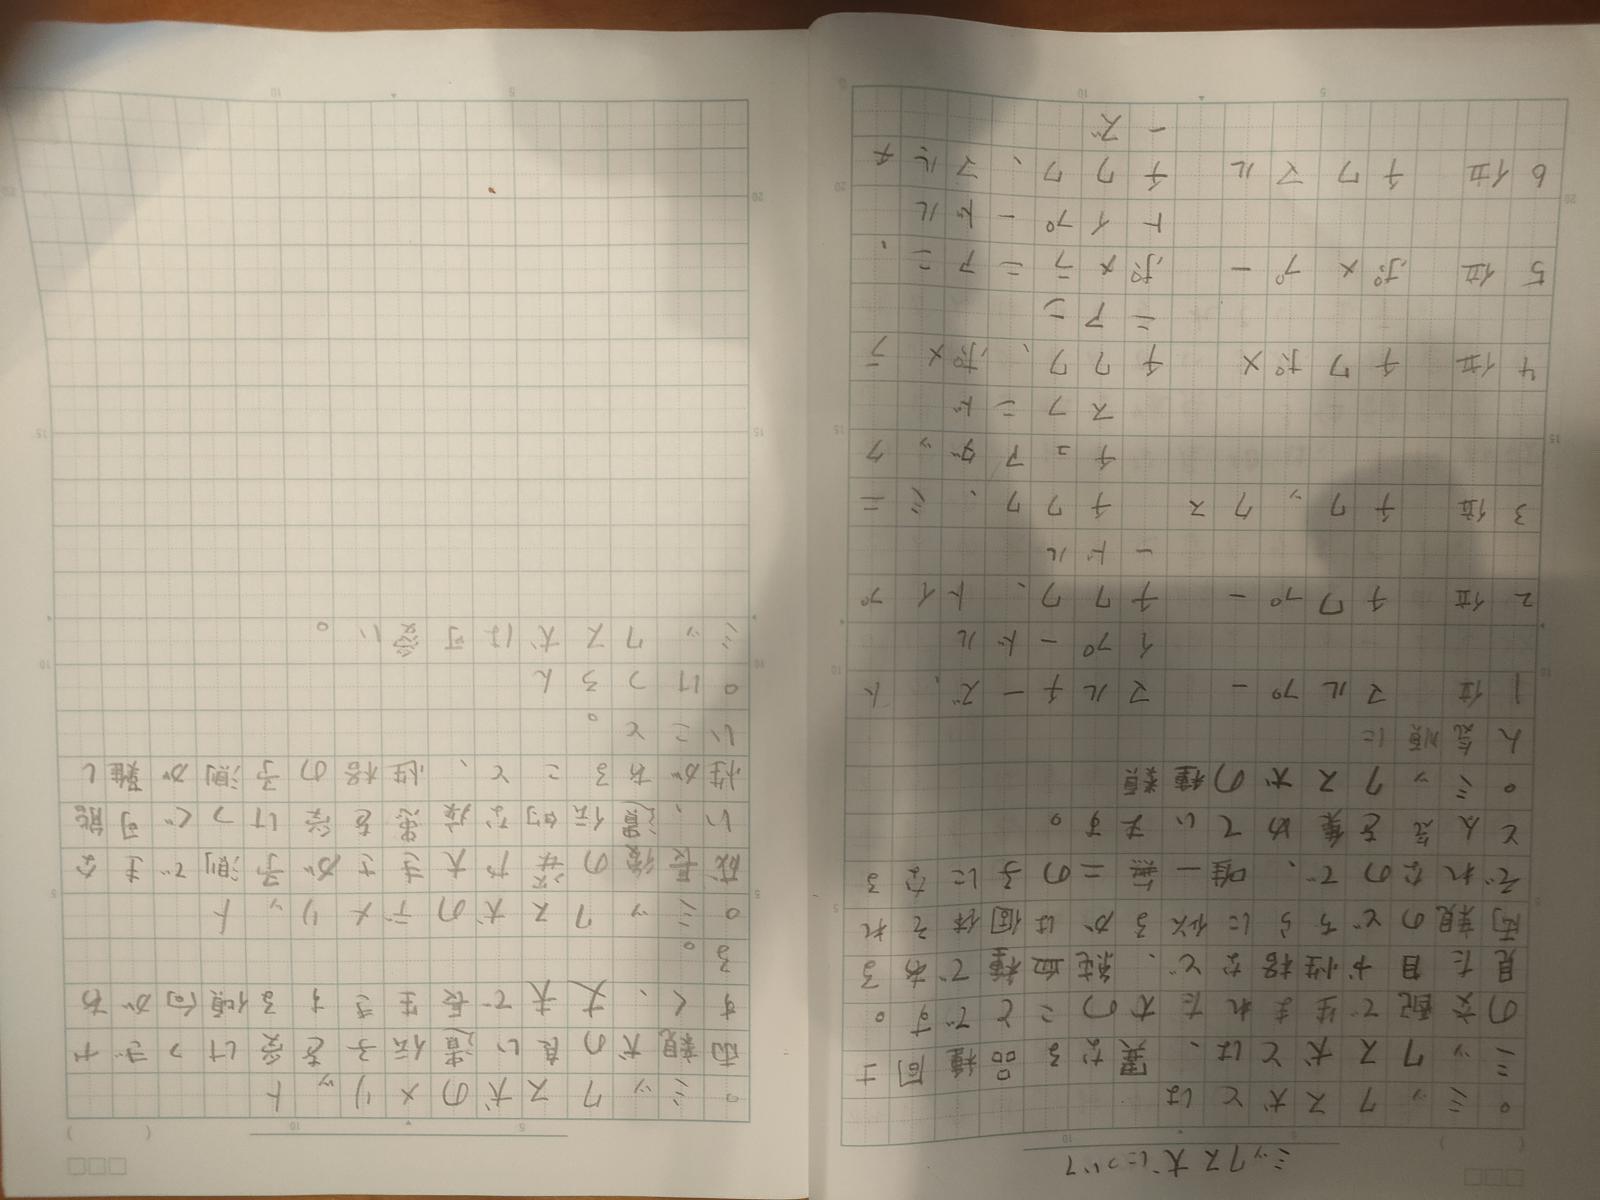 ミックス犬について
○ミックス犬とは
ミックス犬とは、異なる品種同士
の交配で生まれた犬のことです。
見た目や性格など、純血種である
両親のどちらに似るかは個体それ
ぞれなので、唯一無二の子になる
と人気を集めています。
○ミックス犬の種類
人気順に
1位 マルプー マルチーズ、ト
イプードル
2位 チワプー チワワ、トイプ
ードル
3位 チワックス チワワ、ミニ
チュアダック
スフンド
4位 チワポメ チワワ、ポメラ
ニアン
5位 ポメプー ポメラニアン、
トイプードル
6位 チワマル チワワ、マルチ
ーズ
○ミックス犬のメリット
両親犬の良い遺伝子を受けつぎや
すく、丈夫で長生きする傾向があ
る。
○ミックス犬のデメリット
成長後の姿や大きさが予測できな
い、遺伝的な疾患を受けつぐ可能
性があること、性格の予測が難し
いこと。
○けつろん
ミックス犬は可愛い。